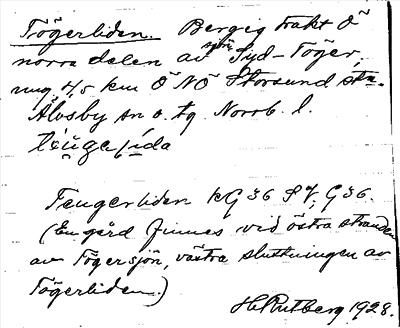 Trögerliden. Bergig trakt Ö
norra delen av sjön Syd-Töger,
ung. 4,5 km ÖNÖ Storsund stn.
Älvsby sn o. tg Norrb. l.
Teugerliden KG 36 SV, G 36.
(En gård finnes vid östra stranden
av Tögersjön, västra sluttningen av
Tögerliden.)
H. Rutberg 1928.